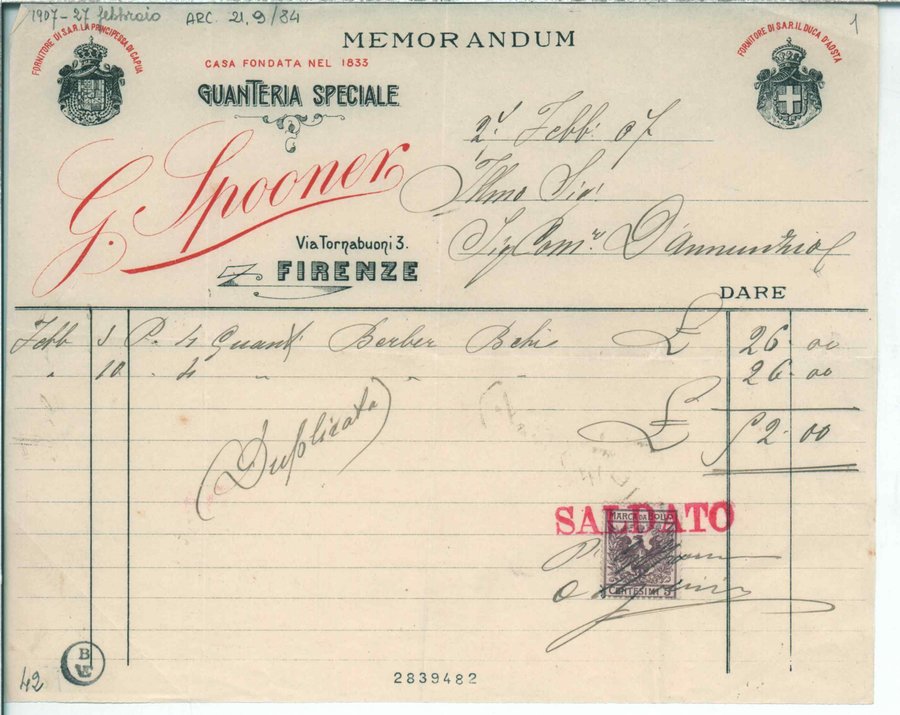 1907-27 febbraio ARC. 21.9/84
1
FORNITORE DI S.A.R. LA PRINCIPESSA DI CAPUA
MEMORANDUM
FORNITORE DI S.A.R. IL DUCA D'AOSTA
CASA FONDATA NEL 1833
GUANTERIA SPECIALE
Febb. 07
G. Spooner
Illmo Sig.
Via Tornabuoni 3.
Sig Com.re D'Annunzio
FIRENZE
DARE
Febb 5 P. 4 Guanti Berber £ 26.00
" 10 " 4 " " " 26.00
(Duplicata) £ 52.00
SALDATO
MARCA DA BOLLO
CENTESIMI 5
42
2839482